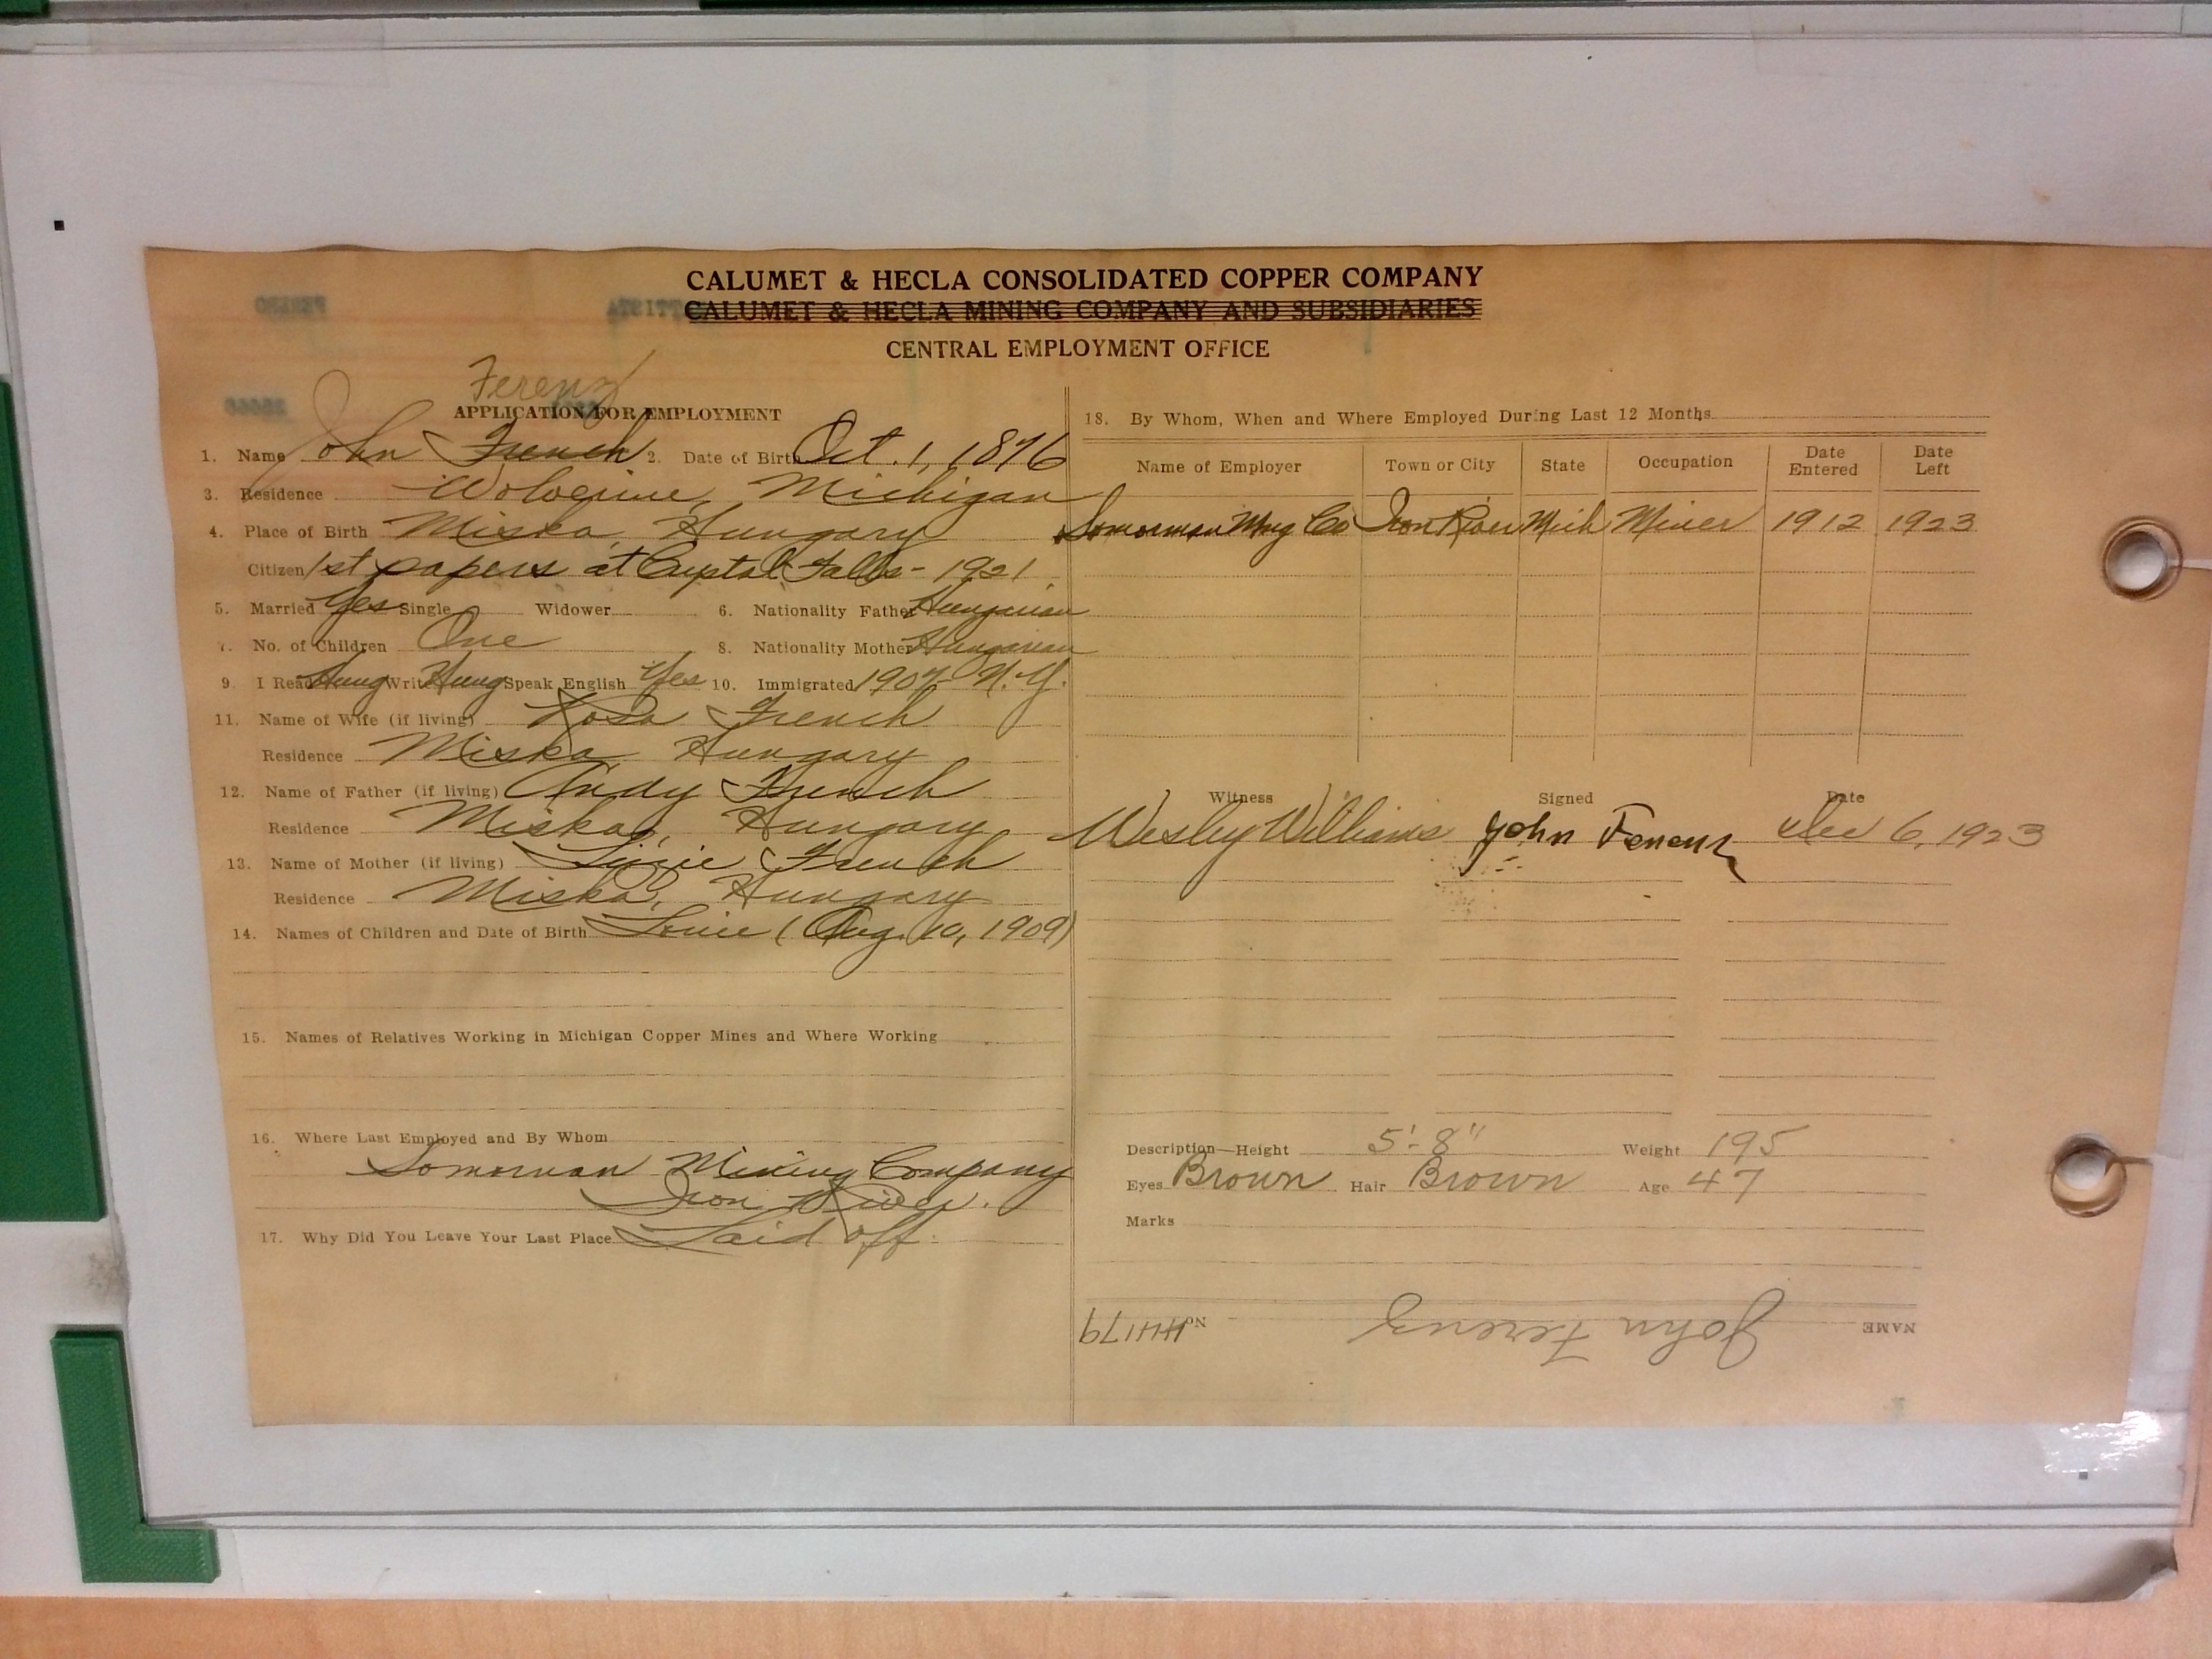 CALUMET & HECLA CONSOLIDATED COPPER COMPANY
CALUMET & HECLA MINING COMPANY AND SUBSIDIARIES
CENTRAL EMPLOYMENT OFFICE
Ferenz
APPLICATION FOR EMPLOYMENT
1. Name John French 2. Date of Birth Oct. 1, 1876
3. Residence Wolverine, Michigan
4. Place of Birth Miska, Hungary
Citizen 1st papers at Crystal Falls - 1921
5. Married Yes Single Widower 6. Nationality Father Hungarian
7. No. of Children One 8. Nationality Mother Hungarian
9. I Read Hung Write Hung Speak English Yes 10. Immigrated 1907 N.Y.
11. Name of Wife (if living) Rosa French
Residence Miska Hungary
12. Name of Father (if living) Andy French
Residence Miska, Hungary
13. Name of Mother (if living) Lizzie French
Residence Miska, Hungary
14. Names of Children and Date of Birth Louie (Aug. 10, 1909)
15. Names of Relatives Working in Michigan Copper Mines and Where Working
16. Where Last Employed and By Whom
Somorman Mining Company
Iron River.
17. Why Did You Leave Your Last Place Laid off.
18. By Whom, When and Where Employed During Last 12 Months
Name of Employer Town or City State Occupation Date Entered Date Left
Somorman Mng Co Iron River Mich Miner 1912 1923
Witness Signed Date
Wesley Williams John Ferenz Dec 6, 1923
Description—Height 5'-8" Weight 195
Eyes Brown Hair Brown Age 47
Marks
NAME John Ferenz No.